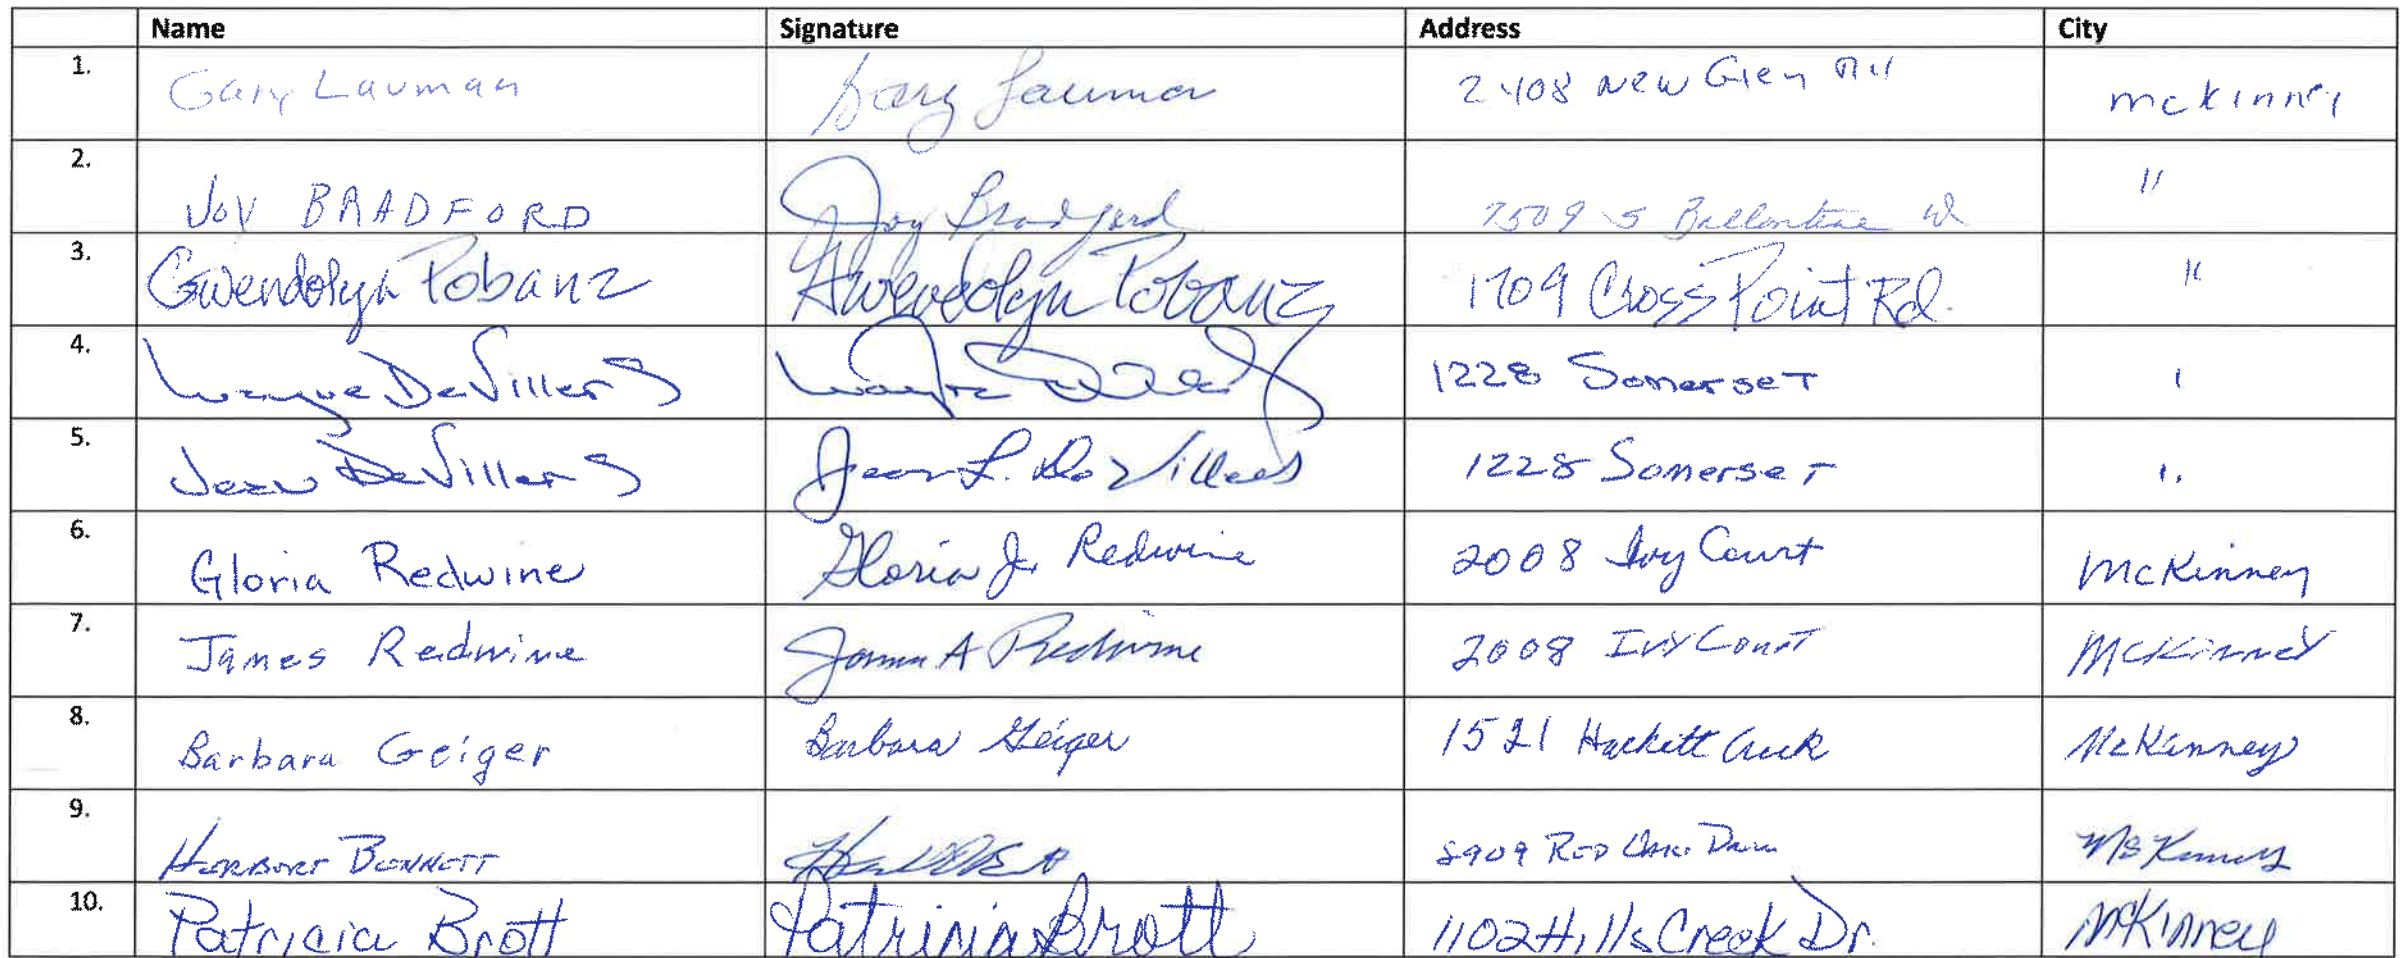 Name Signature Address City
1. Gary Lauman Gary Lauman 2408 New Glen mckinney
2. JOY BRADFORD Joy Bradford 7509 S Ballantrae "
3. Gwendolyn Pobanz Gwendolyn Pobanz 1709 Cross Point Rd. "
4. Wayne DeVillers 1228 Somerset "
5. Jean DeVillers Jean L. DeVillers 1228 Somerset "
6. Gloria Redwine Gloria J. Redwine 2008 Ivy Court McKinney
7. James Redwine James A Redwine 2008 Ivy Court McKinney
8. Barbara Geiger Barbara Geiger 1521 Hackett Creek McKinney
9. Herbert Bennett Red McKinney
10. Patricia Brott Patricia Brott 1102 Hills Creek Dr. McKinney